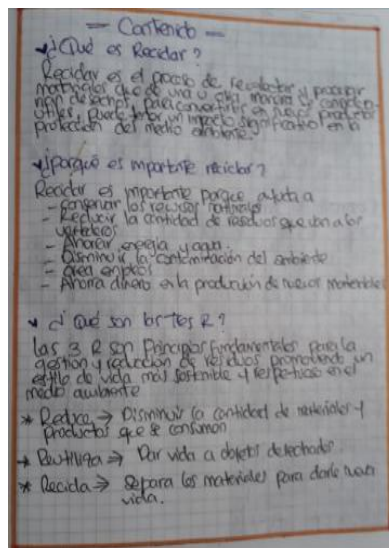 Contenido
¿Qué es Reciclar?
Reciclar es el proceso de recolectar y procesar
materiales que de una u otra manera se
desechos, para convertirlos en nuevos productos
útiles, puede tener un impacto significativo en la
protección del medio ambiente.
¿porqué es importante reciclar?
Reciclar es importante porque ayuda a
- conservar los recursos naturales
- Reducir la cantidad de residuos que van a los
vertederos
- Ahorrar energía y agua.
- Disminuir la contaminación del ambiente
- crea empleos
- Ahorra dinero en la producción de nuevos materiales
¿Qué son las tres R?
Las 3 R son Principios fundamentales para la
gestión y reducción de residuos promoviendo un
estilo de vida más sostenible y respetuoso en el
medio ambiente
* Reduce → Disminuir la cantidad de materiales y
productos que se consumen
→ Reutiliza → Dar vida a objetos desechados.
* Recicla → Separa los materiales para darle nueva
vida.